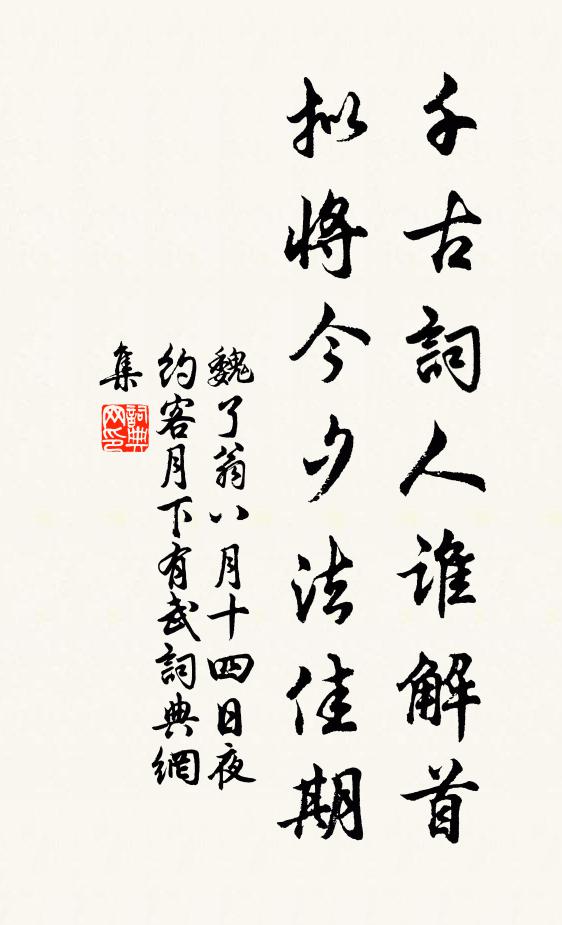 千古詞人誰解首
拟將今夕法佳期
魏了翁八月十四日夜
約客月下有武詞典網
集
詞典网印